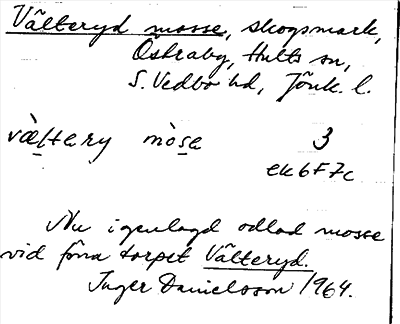 Välteryd mosse, skogsmark,
Östraby, Hults sn,
S. Vedbo hd, Jönk. l.
væ̀ltery mòse 3
ek 6F7c
Nu igenlagd odlad mosse
vid förra torpet Välteryd.
Inger Danielsson 1964.